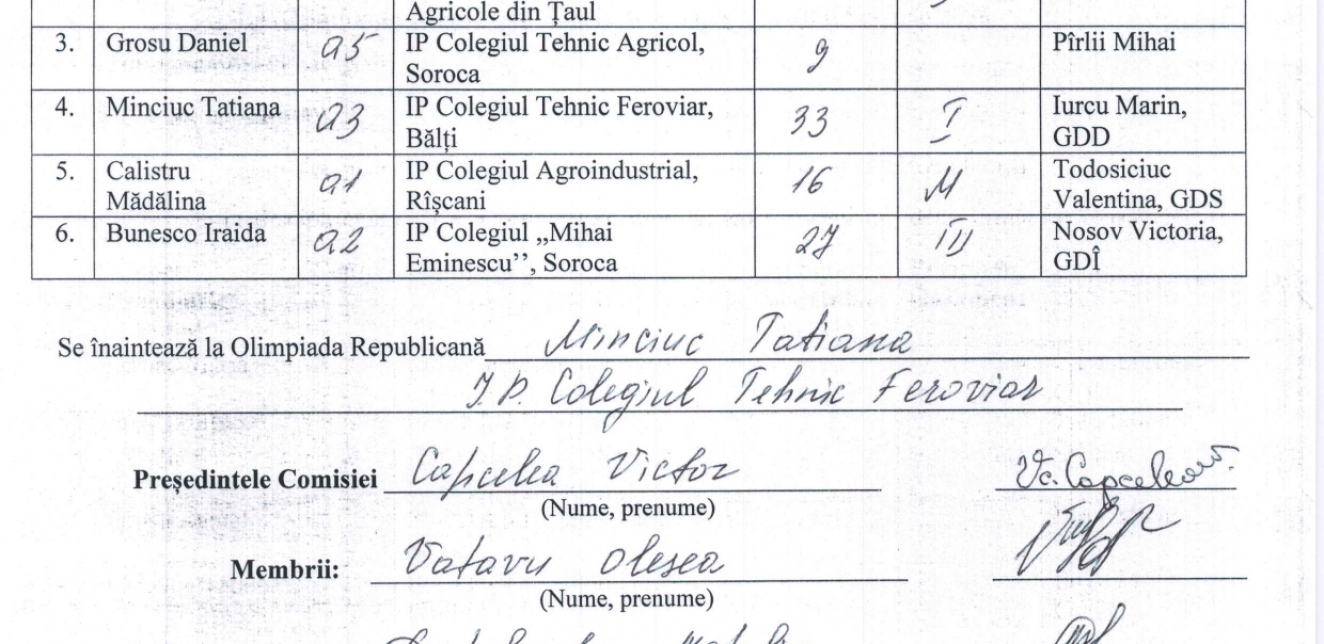 Agricole din Țaul
3. Grosu Daniel a5 IP Colegiul Tehnic Agricol, 9 Pîrlii Mihai
Soroca
4. Minciuc Tatiana a3 IP Colegiul Tehnic Feroviar, 33 I Iurcu Marin,
Bălți GDD
5. Calistru a1 IP Colegiul Agroindustrial, 16 M Todosiciuc
Mădălina Rîșcani Valentina, GDS
6. Bunesco Iraida a2 IP Colegiul „Mihai 27 III Nosov Victoria,
Eminescu’’, Soroca GDÎ
Se înaintează la Olimpiada Republicană Minciuc Tatiana
I.P. Colegiul Tehnic Feroviar
Președintele Comisiei Capcelea Victor Vc. Capcelea
(Nume, prenume)
Membrii: Vatavu Olesea
(Nume, prenume)